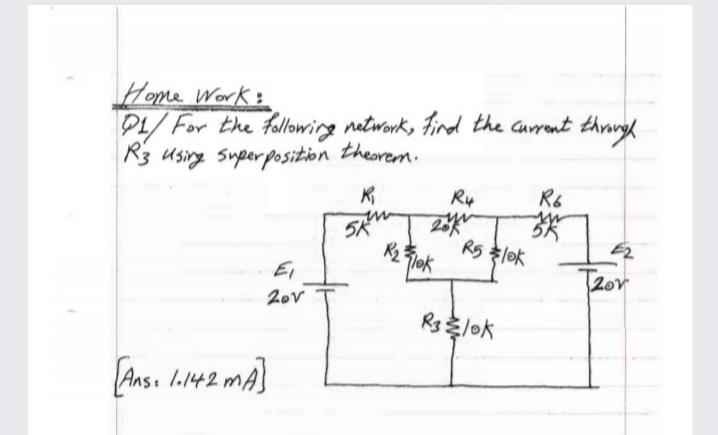 Home Work:
Q1/ For the following network, find the current through
R3 using superposition theorem.
R1 R4 R6
5K 20K 5K
R2 10K R5 10K E2
E1 20V
20V
R3 10K
[Ans: 1.142 mA]